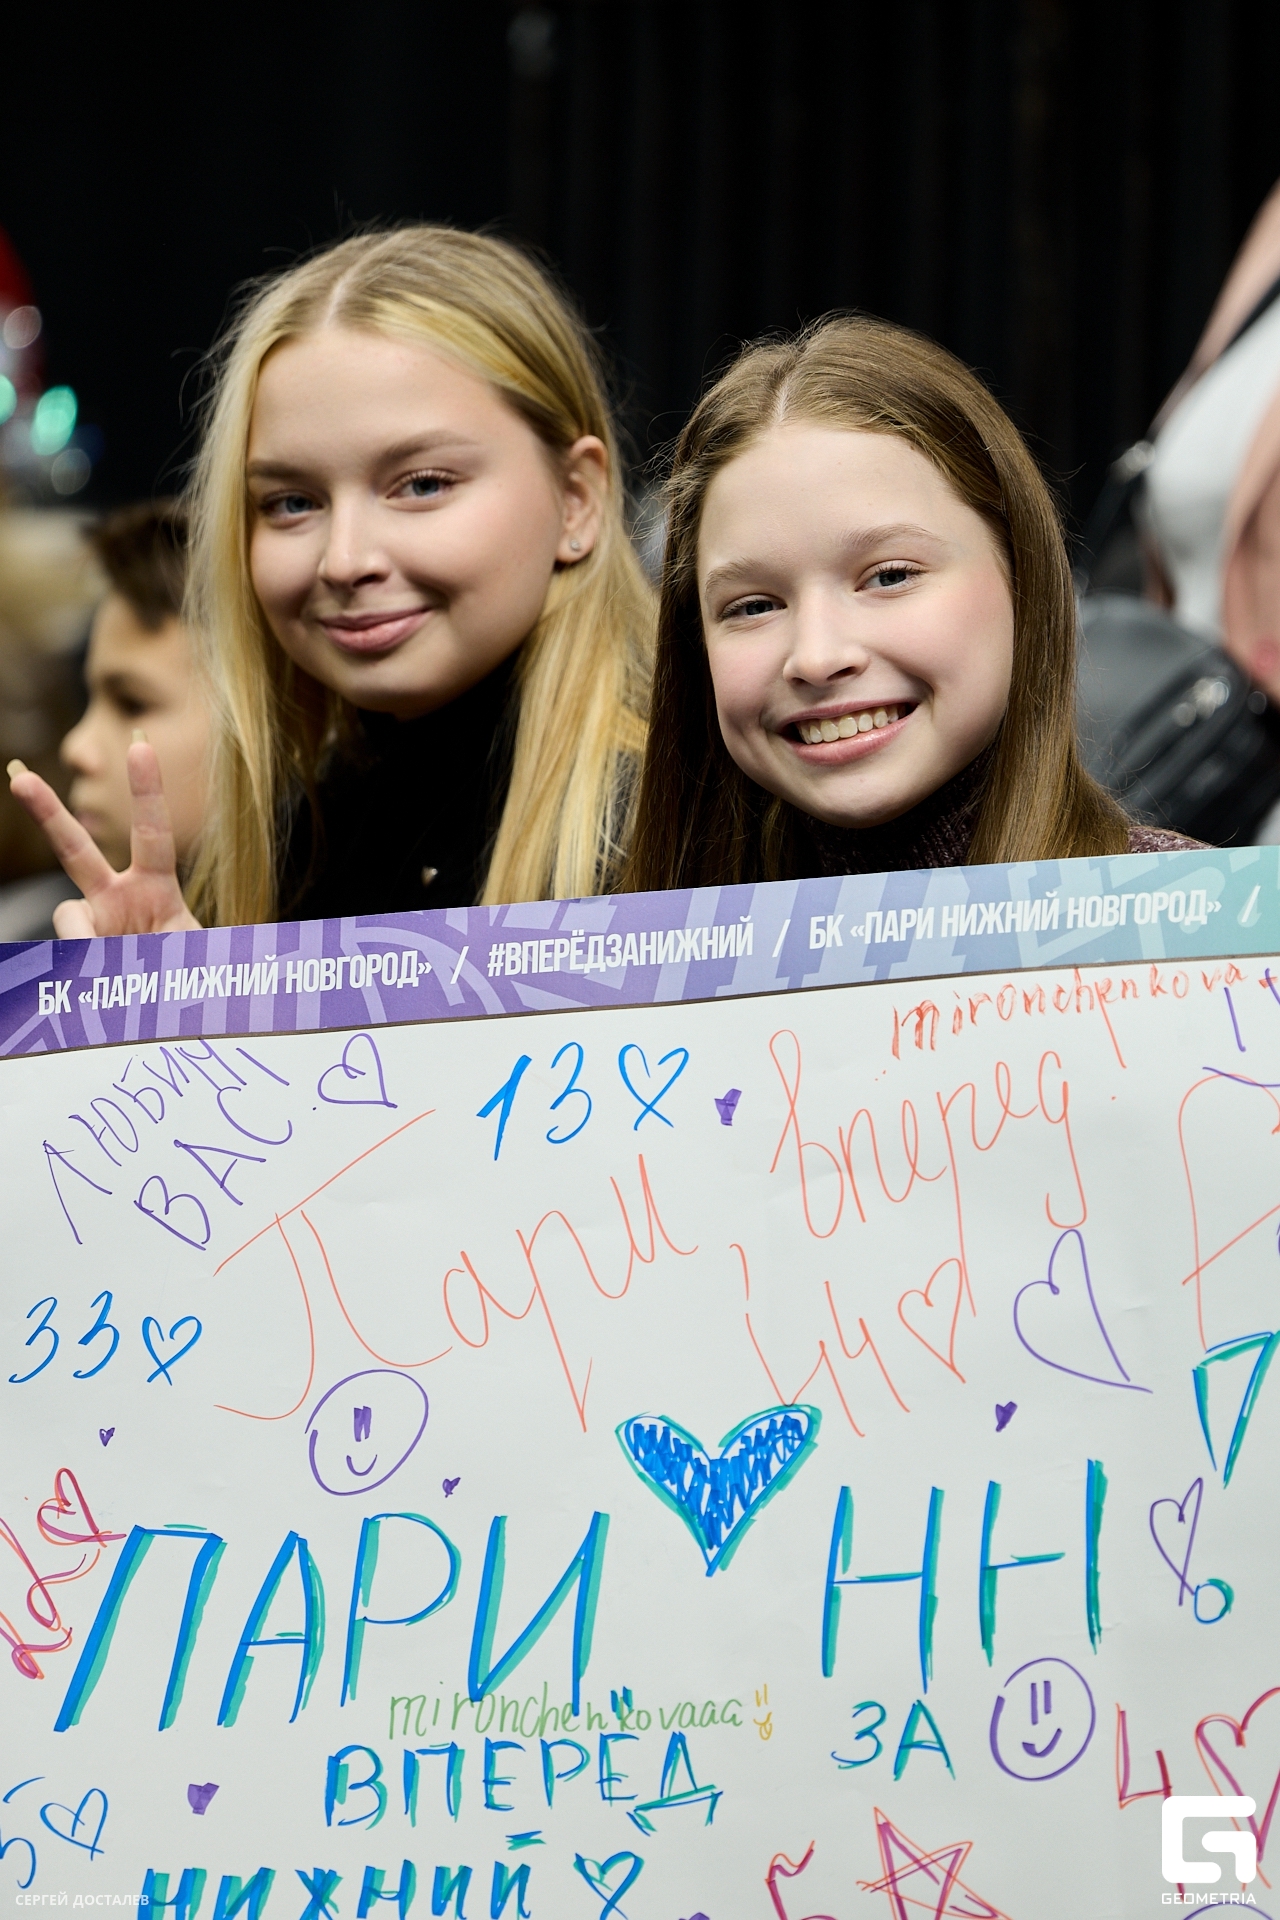 БК «ПАРИ НИЖНИЙ НОВГОРОД» / #ВПЕРЁДЗАНИЖНИЙ / БК «ПАРИ НИЖНИЙ НОВГОРОД» /
mironchenkova
ЛЮБИМ
ВАС
13
Пари, вперед!
33
44
ПАРИ НН
mironchenkovaaa
ВПЕРЕД ЗА
4
5
НИЖНИЙ
5
СЕРГЕЙ ДОСТАЛЕВ
GEOMETRIA